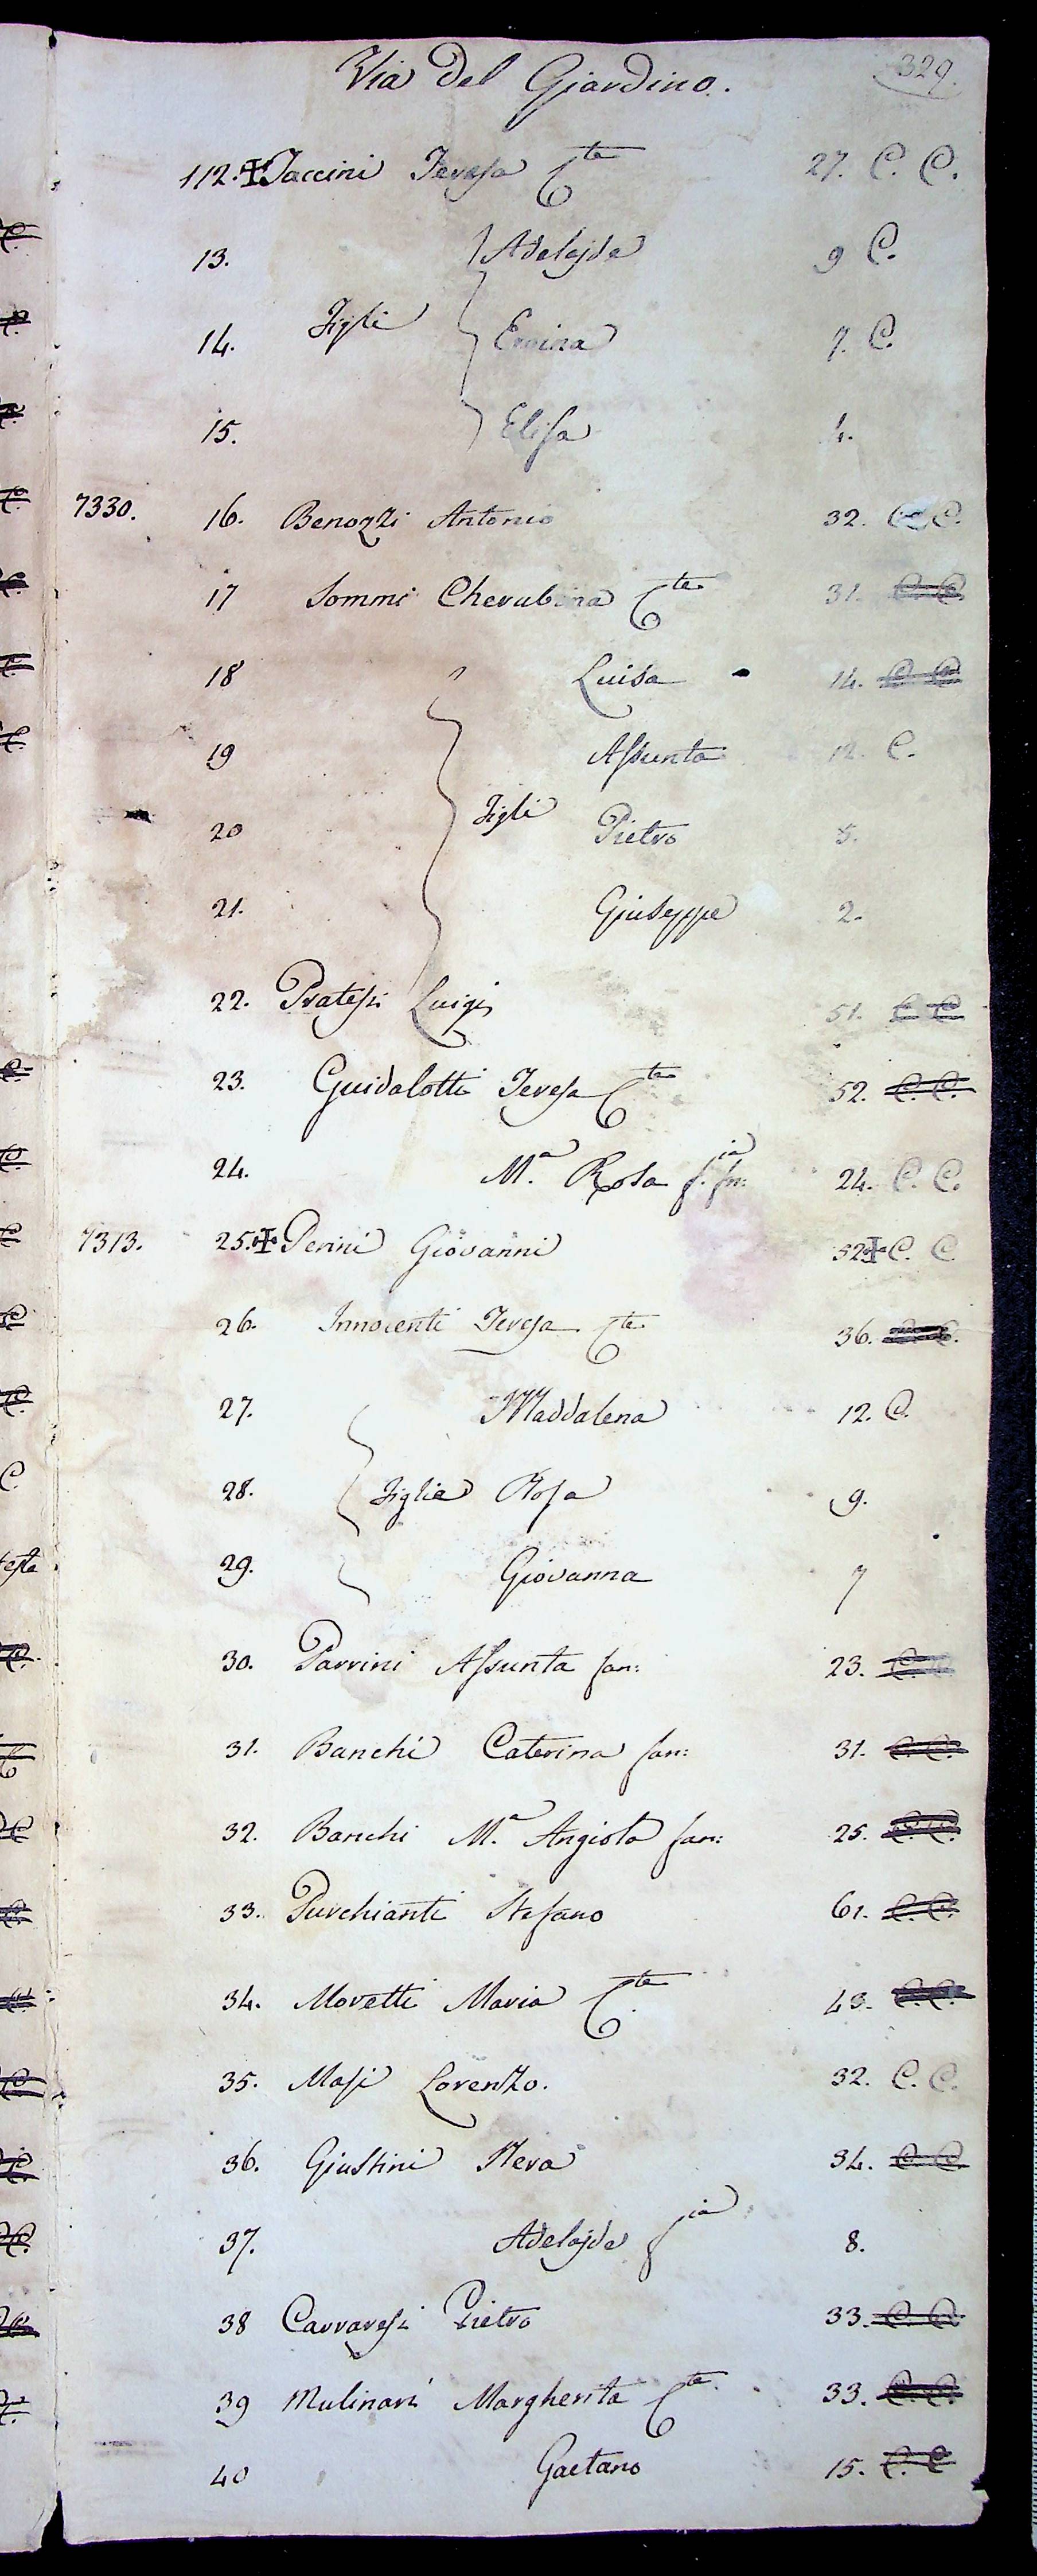 Via del Giardino. 329.
112. ✠ Taccini Teresa Cte 27. C. C.
13. Adelajde 9 C.
14. Figli Ersina 7. C.
15. Elisa 4.
7330. 16. Benozzi Antonio 32. C. C.
17 Sommi Cherubina Cte 31. C. C.
18 Luisa 14. C. C.
19 Assunta 12. C.
20 Figli Pietro 5.
21. Giuseppe 2.
22. Pratesi Luigi 51. C. C.
23. Guidalotti Teresa Cte 52. C. C.
24. Ma. Rosa f.ia fn: 24. C. C.
7313. 25. ✠ Perini Giovanni 52 ✠ C. C.
26. Innocenti Teresa Cte 36. C. C.
27. Maddalena 12. C.
28. Figlie Rosa 9.
29. Giovanna 7
30. Parrini Assunta fan: 23. C. C.
31. Banchi Caterina fan: 31. C. C.
32. Banchi Ma. Angiola fan: 25. C. C.
33. Purchianti Stefano 61. C. C.
34. Moretti Maria Cte 43. C. C.
35. Masi Lorenzo. 32. C. C.
36. Giustini Neva 34. C. C.
37. Adelajde fia 8.
38 Carraresi Pietro 33. C. C.
39 Mulinari Margherita Cte 33. C. C.
40 Gaetano 15. C. C